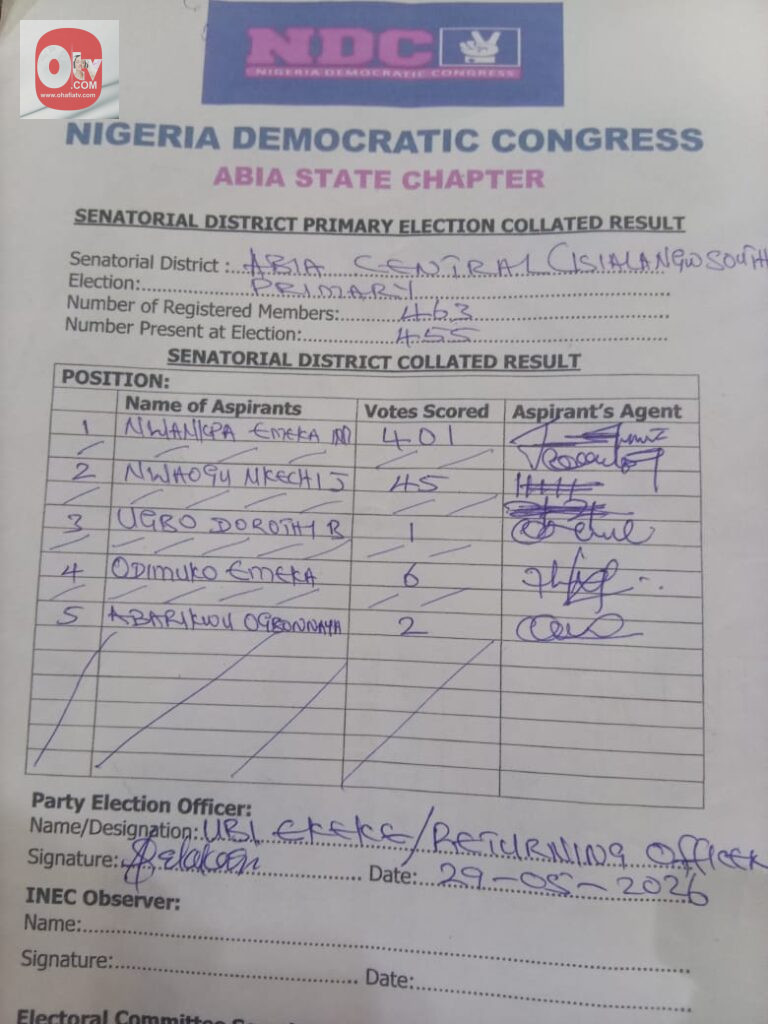 Otv
.COM
www.ohafiatv.com
NDC
NIGERIA DEMOCRATIC CONGRESS
NIGERIA DEMOCRATIC CONGRESS
ABIA STATE CHAPTER
SENATORIAL DISTRICT PRIMARY ELECTION COLLATED RESULT
Senatorial District : ABIA CENTRAL (ISIALANGWSOUTH
Election: PRIMARY
Number of Registered Members: 463
Number Present at Election: 455
SENATORIAL DISTRICT COLLATED RESULT
POSITION:
Name of Aspirants Votes Scored Aspirant's Agent
1 NWANKPA EMEKA M 401
2 NWAOGU NKECHI J 45
3 UGBO DOROTHY B 1
4 ODIMUKO EMEKA 6
5 ABARIKWU OGBONNAYA 2
Party Election Officer:
Name/Designation: UBI EKEKE/RETURNING OFFICER
Signature: Date: 29-05-2026
INEC Observer:
Name:
Signature: Date:
Electoral Committee